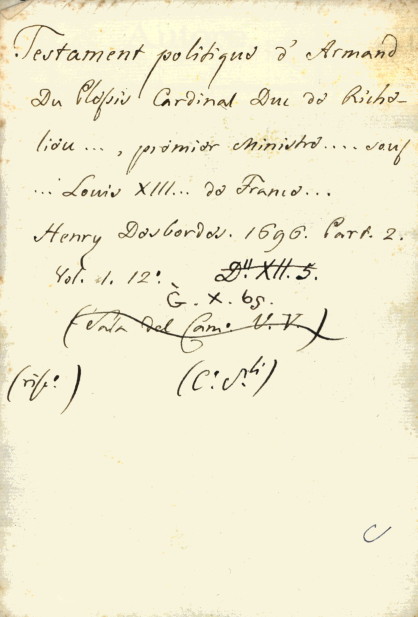 Testament politique d'Armand
Du Plessis Cardinal Duc de Riche-
lieu..., premier Ministre.... souf
... Louis XIII... de France...
Henry Desbordes. 1696. Part. 2.
Vol. 1. 12.º D.II XII. 5.
G. X. 69.
(Sala del Cam.º V. V.)
(risp.º) (C.º S.li)
C